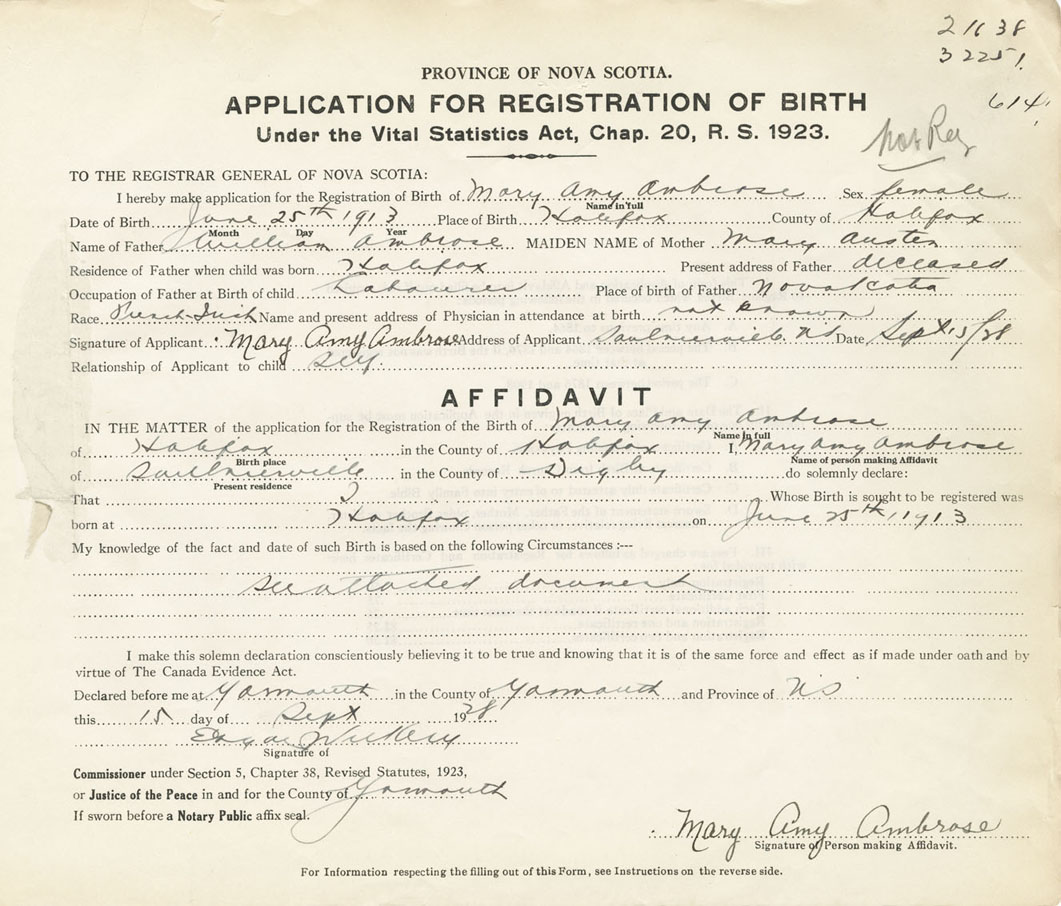 21638
32251.
614.
PROVINCE OF NOVA SCOTIA.
APPLICATION FOR REGISTRATION OF BIRTH
Under the Vital Statistics Act, Chap. 20, R. S. 1923.
Not Reg
TO THE REGISTRAR GENERAL OF NOVA SCOTIA:
I hereby make application for the Registration of Birth of Mary Amy Ambrose Sex female
Name in full
Date of Birth June 25th 1913 Place of Birth Halifax County of Halifax
Month Day Year
Name of Father William Ambrose MAIDEN NAME of Mother Mary Austen
Residence of Father when child was born Halifax Present address of Father deceased
Occupation of Father at Birth of child Labourer Place of birth of Father Nova Scotia
Race French-Irish Name and present address of Physician in attendance at birth not known
Signature of Applicant Mary Amy Ambrose Address of Applicant Saulnierville N.S Date Sept 15/38
Relationship of Applicant to child self.
AFFIDAVIT
IN THE MATTER of the application for the Registration of the Birth of Mary Amy Ambrose
Name in full
of Halifax in the County of Halifax I, Mary Amy Ambrose
Birth place Name of person making Affidavit
of Saulnierville in the County of Digby do solemnly declare:
Present residence
That I Whose Birth is sought to be registered was
born at Halifax on June 25th, 1913
My knowledge of the fact and date of such Birth is based on the following Circumstances :---
see attached document
I make this solemn declaration conscientiously believing it to be true and knowing that it is of the same force and effect as if made under oath and by
virtue of The Canada Evidence Act.
Declared before me at Yarmouth in the County of Yarmouth and Province of N S
this 15 day of Sept 1938
Signature of
Commissioner under Section 5, Chapter 38, Revised Statutes, 1923,
or Justice of the Peace in and for the County of Yarmouth
If sworn before a Notary Public affix seal.
Mary Amy Ambrose
Signature of Person making Affidavit.
For Information respecting the filling out of this Form, see Instructions on the reverse side.